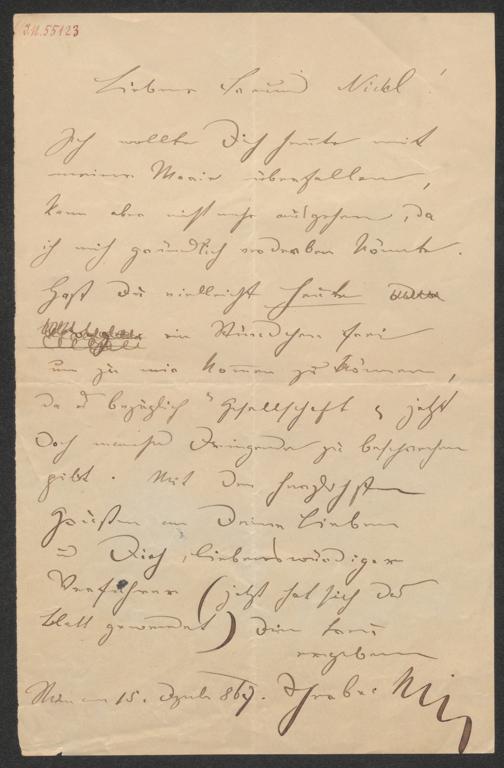 J.N. 55123
Lieber Freund Nickl!
Ich wollte Dich heute mit
meiner Marie überfallen,
kann aber nicht mehr ausgehen, da
ich mich gründlich verderben könnte.
Hast Du vielleicht heute
ein Stündchen frei
um zu mir kommen zu können,
da bezüglich "Gesellschaft" jetzt
doch manches Dringende zu besprechen
gibt. Mit den herzlichsten
Grüßen an Deine Lieben
u Dich, liebenswürdiger
Verführer (jetzt hat sich das
Blatt gewendet) Dein treu
ergebener
Wien am 15. 867.